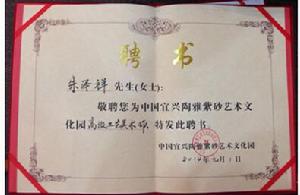 聘书
朱泽祥 先生(女士):
敬聘您为中国宜兴陶雅紫砂艺术文
化园高级工艺美术师,特发此聘书。
中国宜兴陶雅紫砂艺术文化园